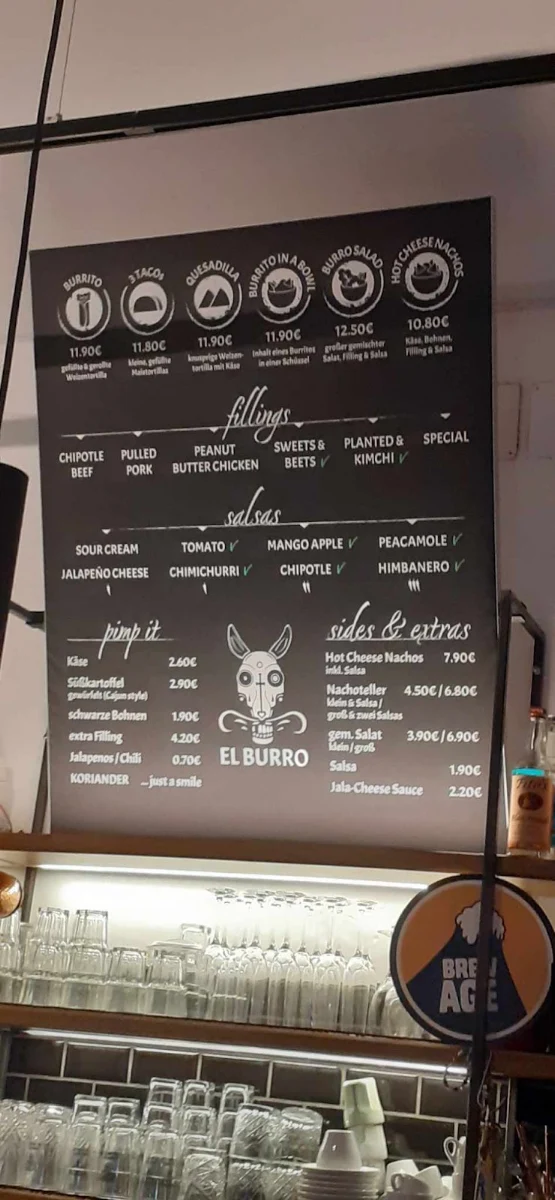 BURRITO
11.90€
gefüllte & gerollte
Weizentortilla
3 TACOS
11.80€
kleine, gefüllte
Maistortillas
QUESADILLA
11.90€
knusprige Weizen-
tortilla mit Käse
BURRITO IN A BOWL
11.90€
Inhalt eines Burritos
in einer Schüssel
BURRO SALAD
12.50€
großer gemischter
Salat, Filling & Salsa
HOT CHEESE NACHOS
10.80€
Käse, Bohnen,
Filling & Salsa
fillings
CHIPOTLE
BEEF
PULLED
PORK
PEANUT
BUTTER CHICKEN
SWEETS &
BEETS ✓
PLANTED &
KIMCHI ✓
SPECIAL
salsas
SOUR CREAM
TOMATO ✓
MANGO APPLE ✓
PEACAMOLE ✓
JALAPEÑO CHEESE
CHIMICHURRI ✓
CHIPOTLE ✓
HIMBANERO ✓
pimp it
Käse 2.60€
Süßkartoffel 2.90€
gewürfelt (Cajun style)
schwarze Bohnen 1.90€
extra Filling 4.20€
Jalapenos / Chili 0.70€
KORIANDER ...just a smile
EL BURRO
sides & extras
Hot Cheese Nachos 7.90€
inkl. Salsa
Nachoteller 4.50€ / 6.80€
klein & Salsa /
groß & zwei Salsas
gem. Salat 3.90€ / 6.90€
klein / groß
Salsa 1.90€
Jala-Cheese Sauce 2.20€
Tito's
BREW
AGE